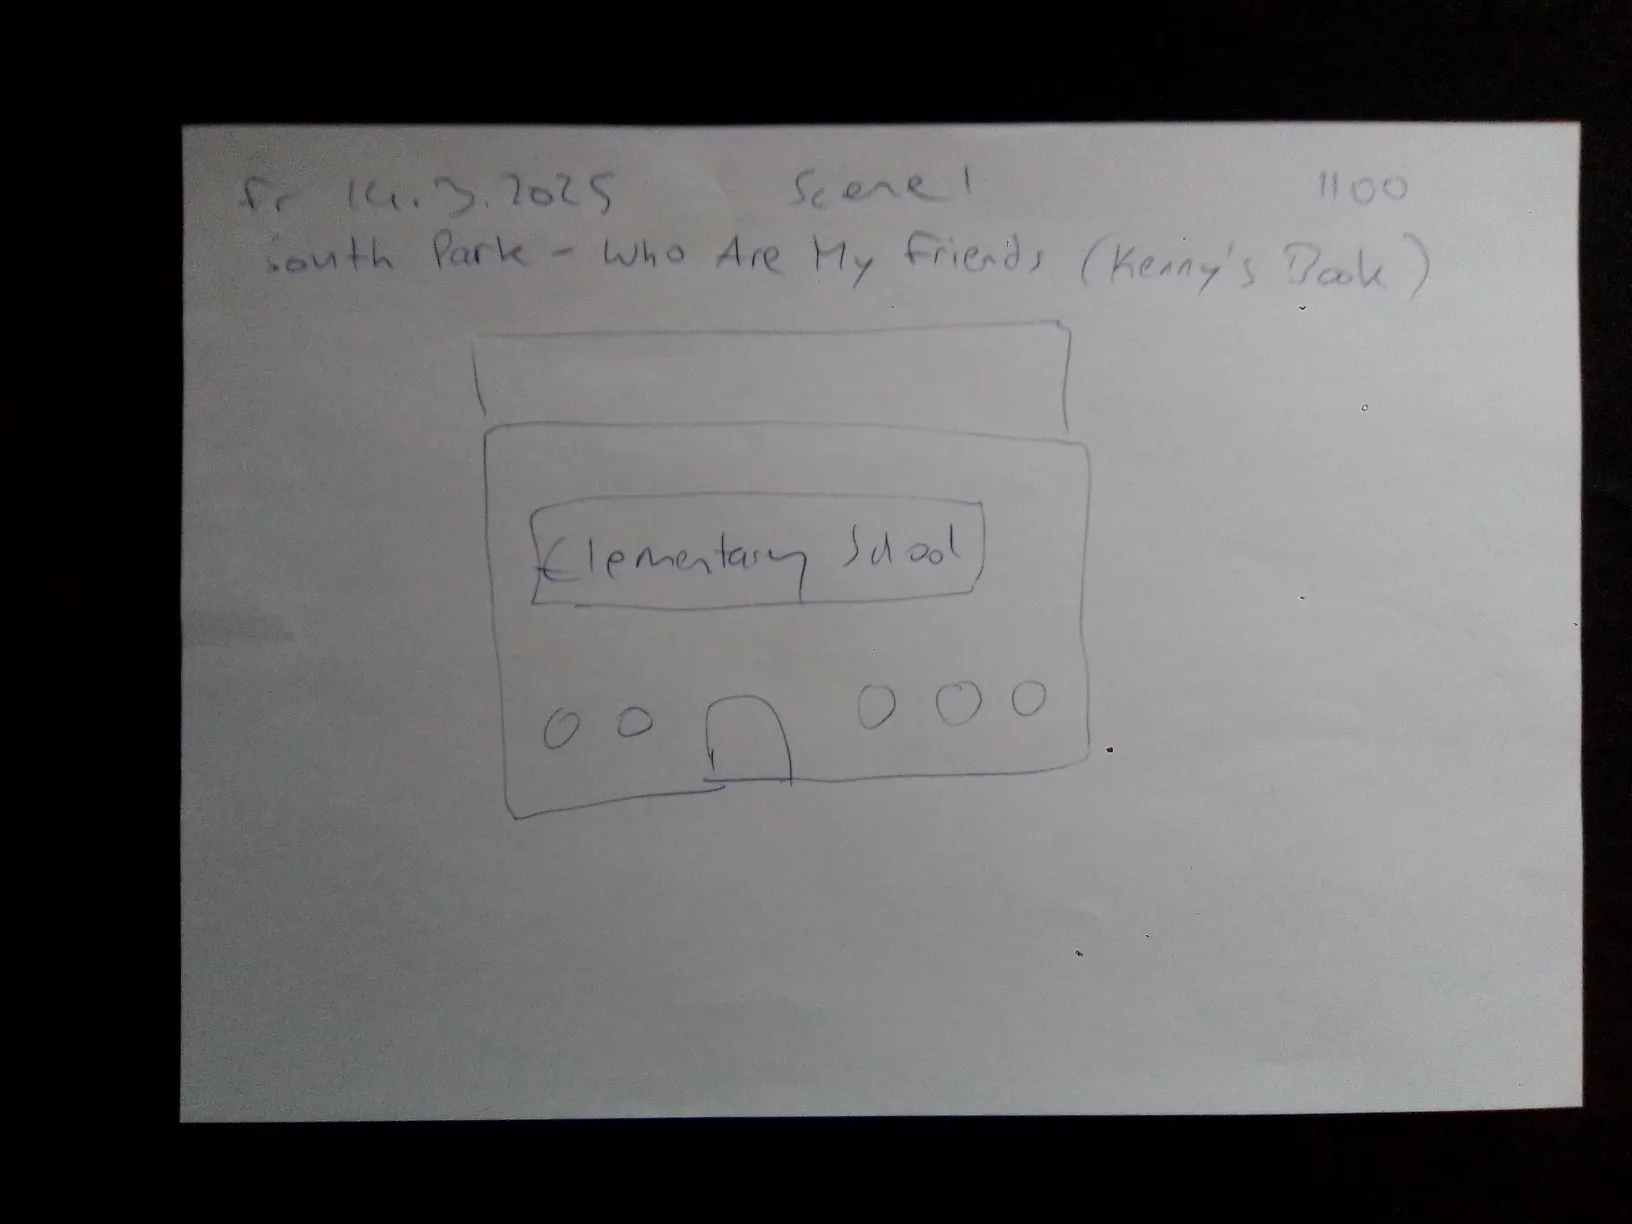 Fr 14.3.2025 Scene 1 1100
South Park - Who Are My Friends (Kenny's Book)
Elementary School